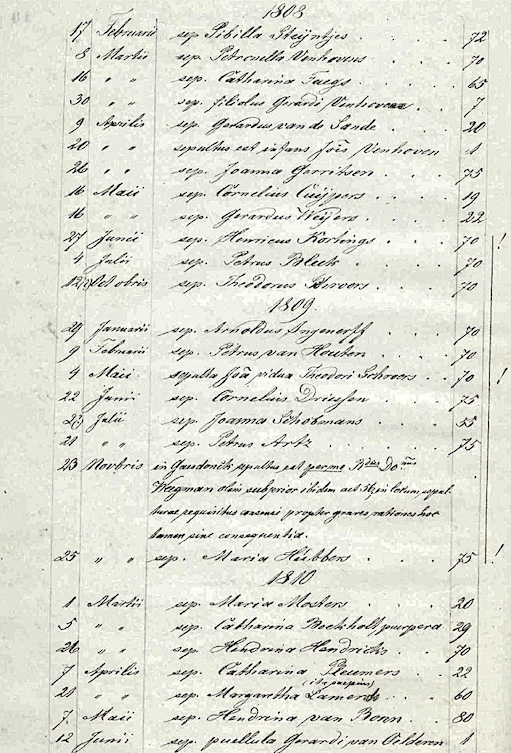 1808
17 Februarii sep. Sibilla Steijntjes . . . 72
8 Martii sep. Petronella Venhovens . . 70
16 „ „ sep. Catharina Faegs . . . 65
30 „ „ sep. filiolus Gerardi Venhovens . . 7
9 Aprilis sep. Gerardus van de Sande . . . 20
20 „ „ sepultus est infans Joïs Venhoven 1
26 „ „ sep. Joanna Gerritsen . . . 75
16 Maii sep. Cornelius Cuijpers . . . 19
16 „ „ sep. Gerardus Weijers . . . 22
27 Junii sep. Henricus Kortings . . . 70 !
4 Julii sep. Petrus Bleek . . . 70
Octobris sep. Theodorus . . . 70
1809.
29 Januarii sep. Arnoldus Angenorff . . 70
9 Februarii sep. Petrus van Houten . . . 70
4 Maii sepulta Joä vidua Theodori Schroers . . 70 !
22 Junii sep. Cornelius Driessen . . 75
Julii sep. Joanna Schobmans . . 55
21 „ „ sep. Petrus Artz . . . 75
23 Novbris in Gaesdonck sepultus est Rdus Do
Weegman olim subprior ibidem aet in locum sepul-
turae requisitus consensi propter graves rationes hoc
tamen sine consequentia.
25 „ „ sep. Maria Hubbers . . . 75 !
1810
1 Martii sep. Maria Mosters . . . 20
5 „ „ sep. Catharina Bockholt, puerpera 29
26 „ „ sep. Hendrina Hendricks . . 70
7 Aprilis sep. Catharina Pleumers . . 22
21 „ „ sep. Margartha Lamers . . 60
7 Maii sep. Hendrina van Bonn . . 80
12 Junii sep. puellula Gerardi van Olderen . 1